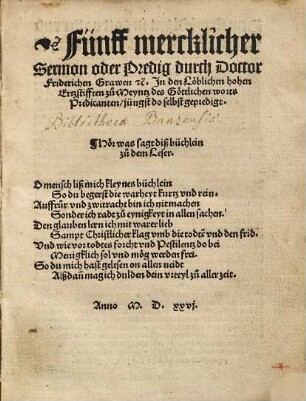 Fünff mercklicher
Sermon oder Predig durch Doctor
Friderichen Grawen ⁊c̄. In den Löblichen hohen
Ertzstifften zů Meyntz des Götlichen worts
Predicanten / jüngst do selbst geprediget.
Bibliotheca Banzensis
Hör was sagt diß büchlein
zů dem Leser.
O mensch liß mich kleynes büchlein
So du begerst die warheyt kurtz vnd rein.
Auffrůr vnd zwitracht bin ich nit machen
Sonder ich radt zů eynigkeyt in allen sachen.
Den glauben lern ich mit warer lieb
Sampt Christlicher klag vmb die todtē vnd den frid.
Vnd wie vor todtes forcht vnd Pestilentz do bei
Menigklich sol vnd mög werden frei.
So du mich hast gelesen on allen neidt
Alßdañ mag ich dulden dein vrteyl zů aller zeit.
Anno M. D. xxvj.